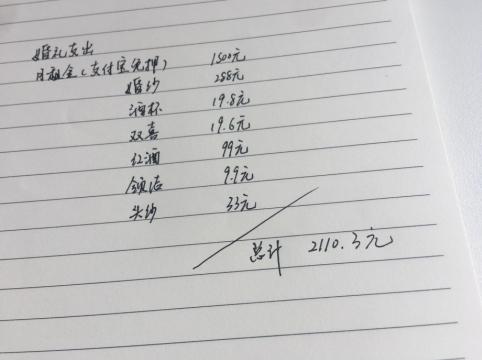 婚礼支出
月租金(支付宝免押) 1500元
婚纱 288元
酒杯 19.8元
双喜 19.6元
红酒 99元
领结 9.9元
头纱 33元
总计 2110.3元